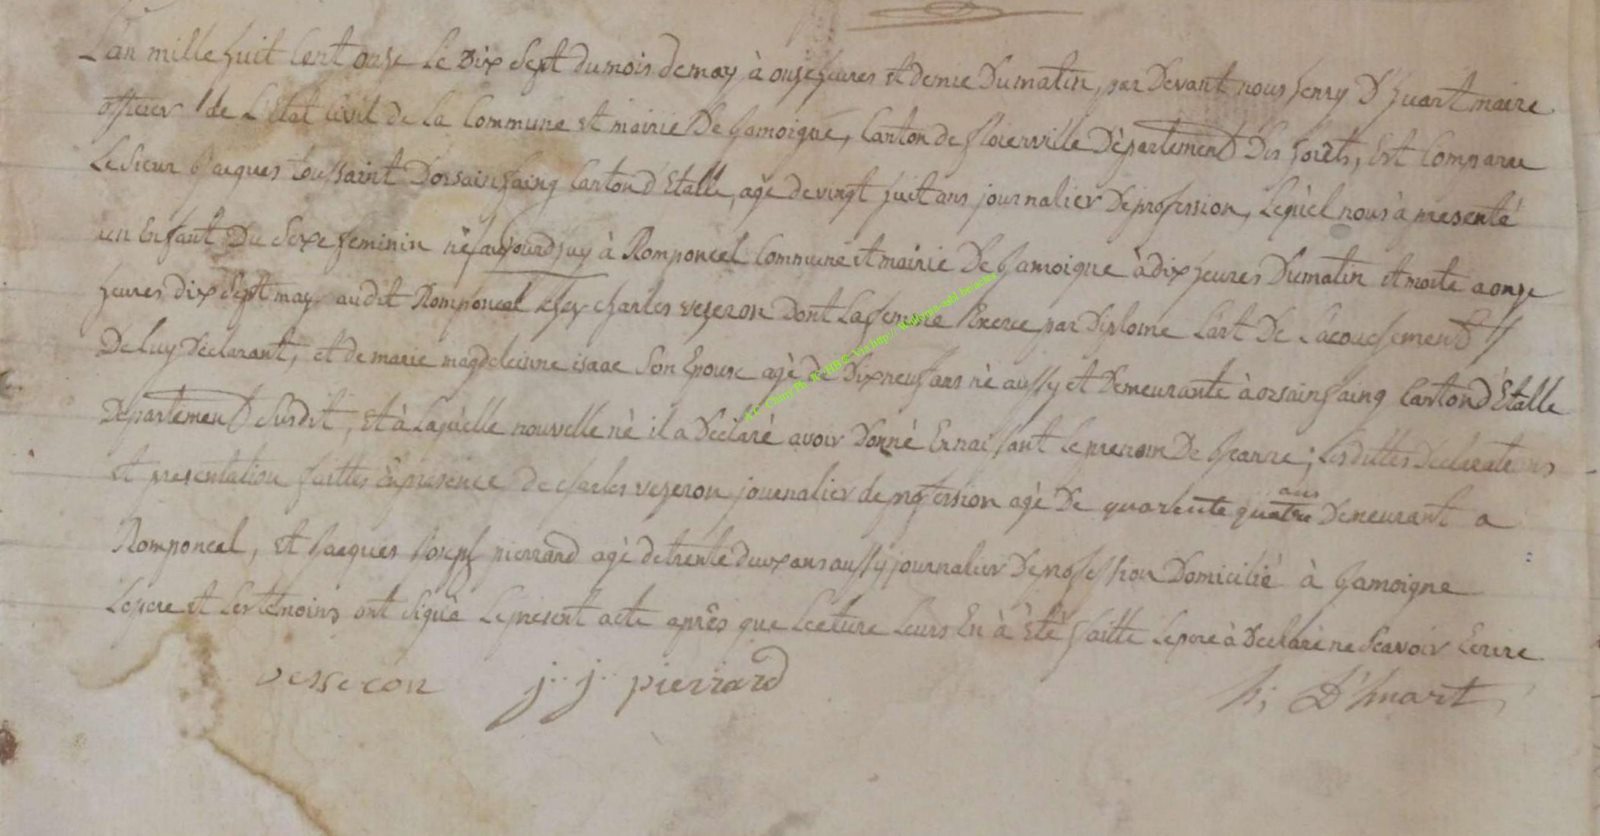 L'an mille huit Cent onze Le Dix Sept du mois de may, à onze heures et demie Du matin, par Devant nous henry D'huart maire
officier de L'Etat civil de La Commune et mairie De Jamoigne, Canton de floirenville Département Des forêts, Est Comparu
Le Sieur Jacques toussaint D'orsainfaing Canton d'Etalle, agé de vingt huit ans journalier De profession, Lequel nous à presenté
un Enfant Du Sexe feminin né aujourd'huy à Romponcel Commune et mairie De Jamoigne à dix heures Du matin et morte a onze
heures dix Sept may audit Romponcel chez charles vezeron Dont La femme Exerce par Diplome L'art De L'acouchement
De Luy Déclarant, et de marie magdeleinne isaac Son Epouse agé de Dixneuf ans né aussy et Demeurante à orsainfaing Canton d'Etalle
Departement Susdit, Et à Laquelle nouvelle né il a Déclaré avoir Donné En naissant Le prenom De Jeanne ; Lesdittes Déclarations
Et presentation faittes En presence de charles vezeron journalier de profession agé De quarente quatre ans Demeurant a
Romponcel, Et Jacques Joseph pierrard agé de trente deux ans aussy journalier De profession Domicilié à Jamoigne
Le pere et Les temoins ont Signé Le present acte après que Lecture Leurs En à Eté faitte Le pere à Declaré ne Scavoir Ecrire
vesseron j: j: pierrard h; D'huart